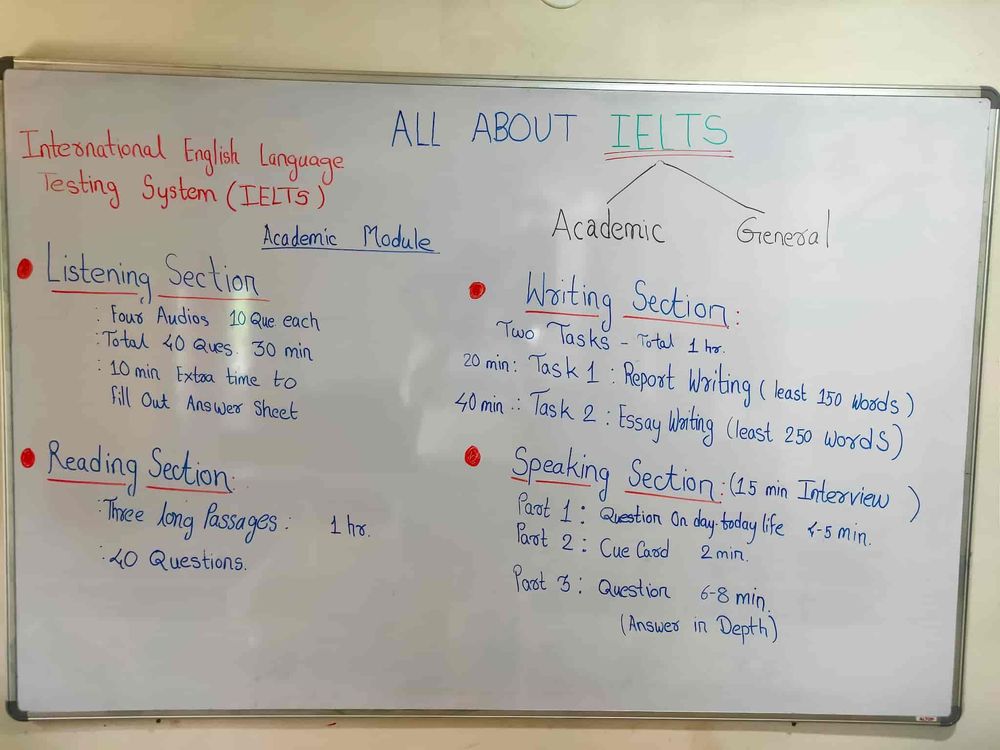 ALL ABOUT IELTS
Academic General
International English Language
Testing System (IELTS)
Academic Module
Listening Section
: Four Audios 10 Que each
: Total 40 Ques. 30 min
: 10 min Extra time to
Fill Out Answer Sheet
Reading Section.
: Three long Passages : 1 hr.
: 40 Questions.
Writing Section :
Two Tasks - Total 1 hr.
20 min : Task 1 : Report Writing ( least 150 words )
40 min : Task 2 : Essay Writing (least 250 words)
Speaking Section : (15 min Interview )
Part 1 : Question On day-today life 4-5 min.
Part 2 : Cue Card 2 min.
Part 3 : Question 6-8 min.
(Answer in Depth)